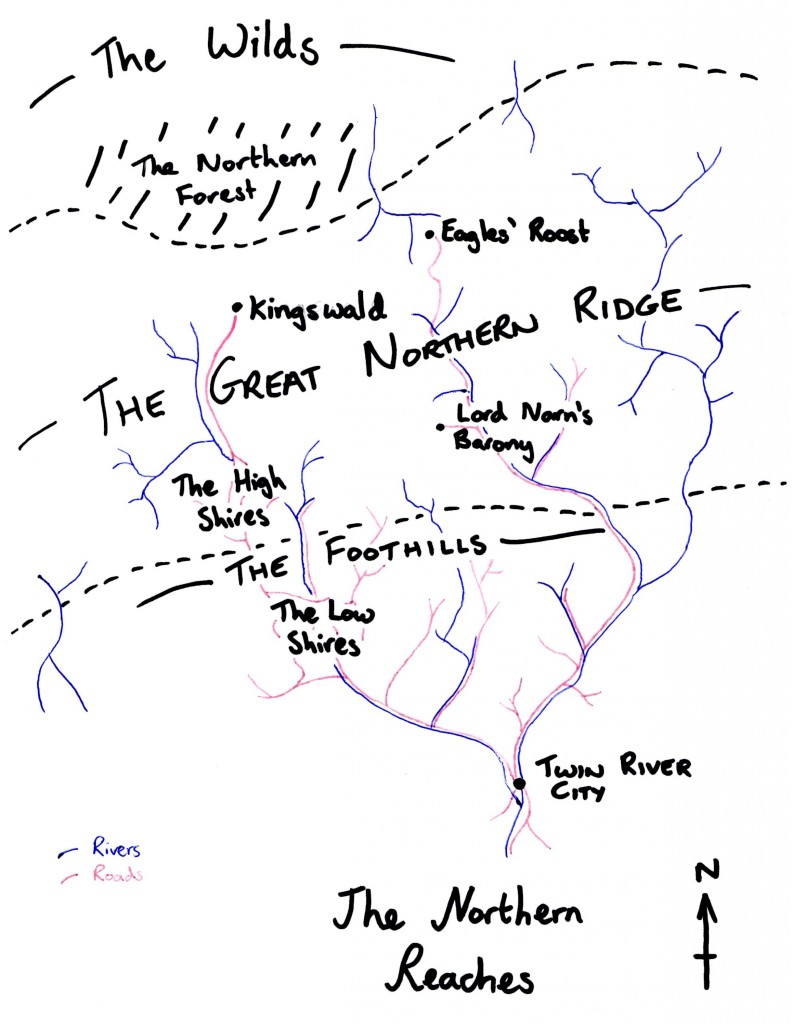 The Wilds
The Northern
Forest
Eagles' Roost
Kingswald
THE GREAT NORTHERN RIDGE
Lord Narn's
Barony
The High
Shires
THE FOOTHILLS
The Low
Shires
TWIN RIVER
CITY
Rivers
Roads
N
The Northern
Reaches